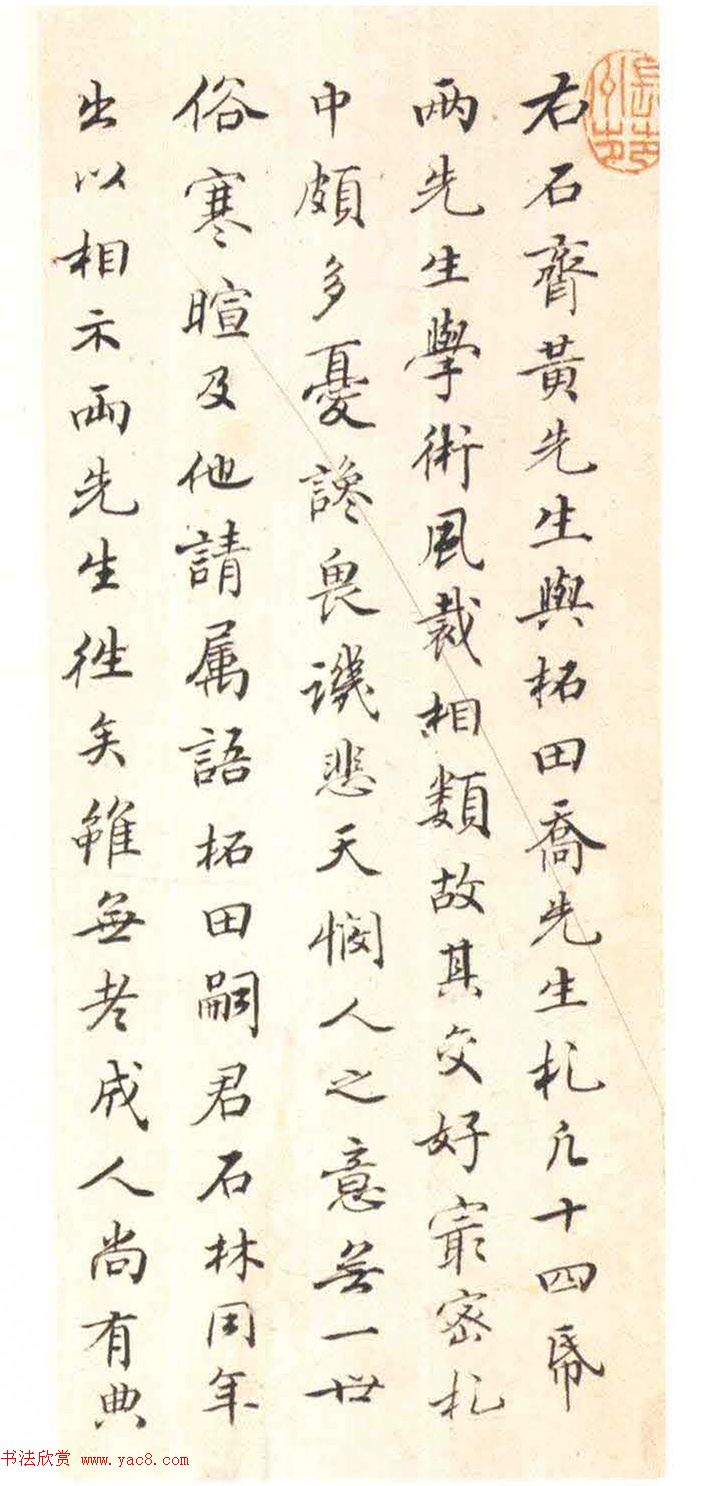 右石齊黃先生與柘田喬先生札凡十四帋
两先生學術風裁相類故其交好㝡密札
中頗多憂讒畏譏悲天憫人之意無一世
俗寒暄及他請属語柘田嗣君石林同年
出以相示两先生往矣雖無老成人尚有典
书法欣赏 www.yac8.com